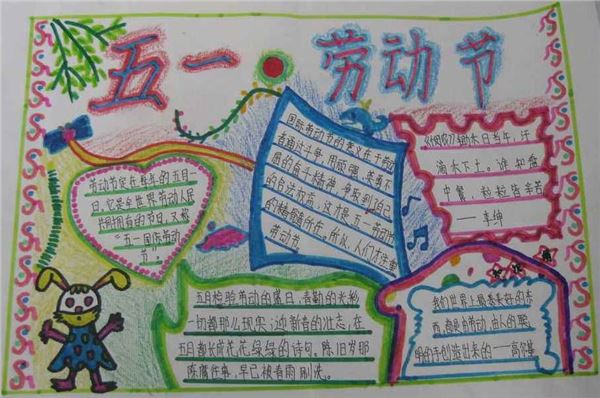 五一 劳动节
劳动节定在每年的五月
一日,它是全世界劳动人民
共同拥有的节日,又称
“五一国际劳动
节”。
国际劳动节的意义在于劳动
者通过斗争,用顽强、英勇不
屈的奋斗精神,争取到自己
的合法权益,这才是五一劳动节
的精髓所在。所以,人们才注重
劳动节
《悯农》锄禾日当午,汗
滴禾下土。谁知盘
中餐,粒粒皆辛苦
——李绅
五月检验劳动的篇日,春勤的光彩
一切都那么现实;迎新春的壮志,在
五月都长成花花绿绿的诗句。陈旧岁那
陈腐往事,早已被春雨刷洗。
我们世界上最美好的东
西,都是由劳动、由人的聪
明的手创造出来的——高尔基